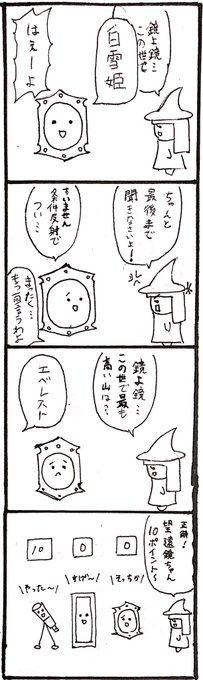 鏡よ鏡…
この世で
白雪姫
はえーよ
ちゃんと
最後まで
聞きなさいよ!
すいません
条件反射で
つい…
まったく…
もう一回言うわよ
鏡よ鏡…
この世で最も
高い山は?
エベレスト
正解!
望遠鏡ちゃん
10ポイント〜
0
0
10
そっちか
すげ〜
やった〜